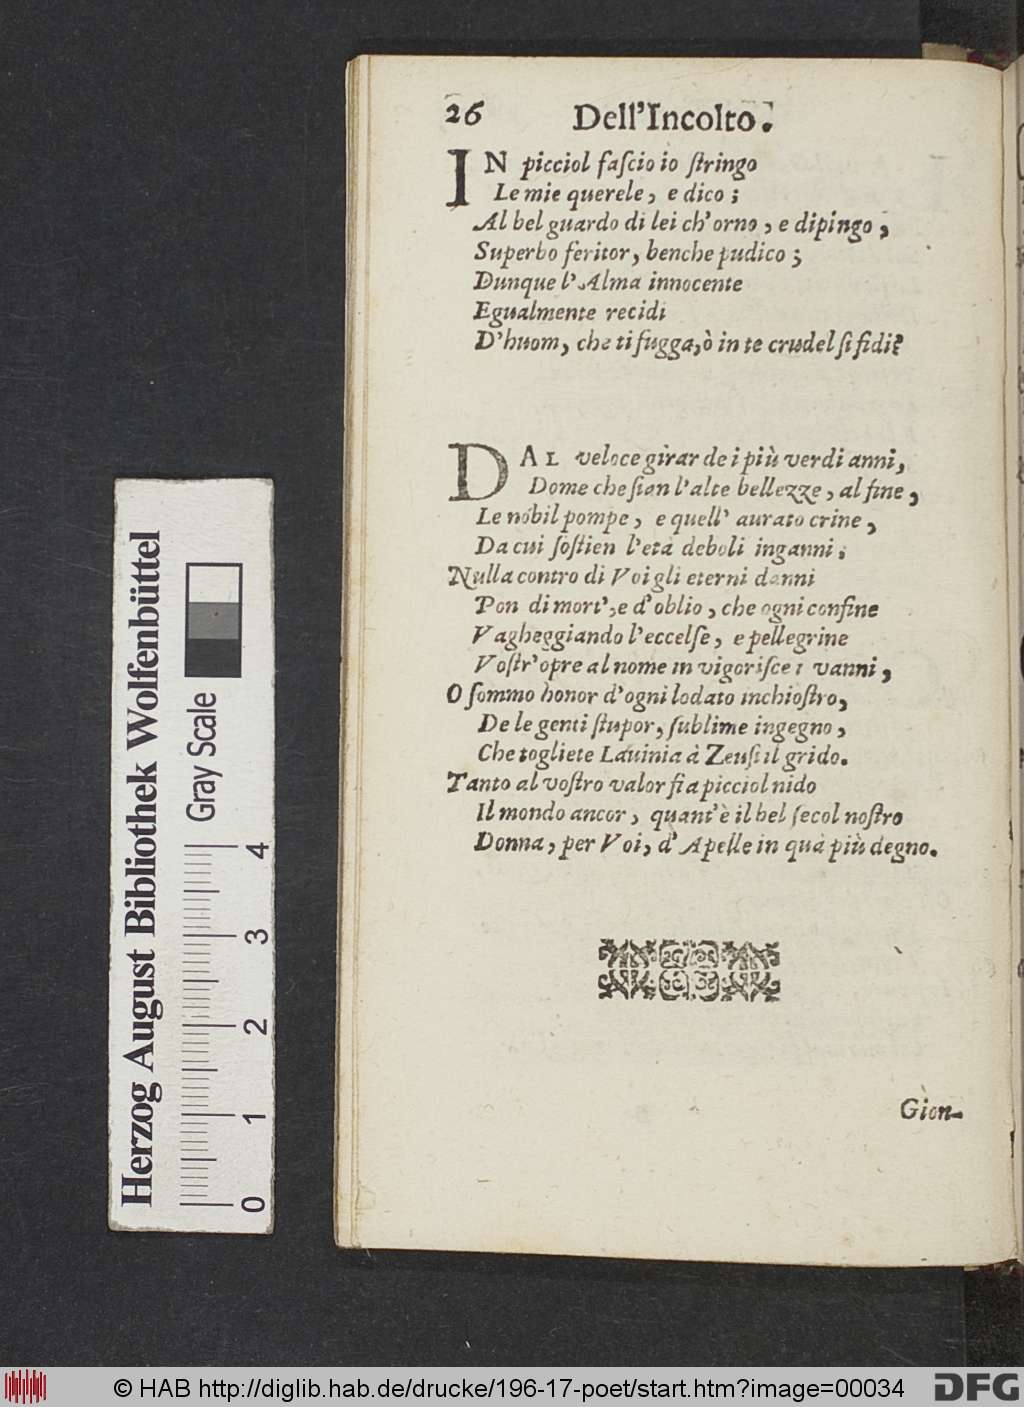 26 Dell'Incolto.
IN picciol faſcio io ſtringo
Le mie querele, e dico;
Al bel guardo di lei ch'orno, e dipingo,
Superbo feritor, benche pudico;
Dunque l'Alma innocente
Egualmente recidi
D'huom, che ti fugga, ò in te crudel ſi fidi?
DAL veloce girar de i più verdi anni,
Dome che ſian l'alte bellezze, al fine,
Le nobil pompe, e quell' aurato crine,
Da cui ſoſtien l'età deboli inganni;
Nulla contro di Voi gli eterni danni
Pon di mort', e d'oblio, che ogni confine
Vagheggiando l'eccelſe, e pellegrine
Voſtr'opre al nome in vigoriſce i vanni,
O ſommo honor d'ogni lodato inchioſtro,
De le genti ſtupor, ſublime ingegno,
Che togliete Lauinia à Zeuſi il grido.
Tanto al voſtro valor fia picciol nido
Il mondo ancor, quant'è il bel ſecol noſtro
Donna, per Voi, d'Apelle in quà più degno.
Gion-
Herzog August Bibliothek Wolfenbüttel
Gray Scale
0 1 2 3 4
© HAB http://diglib.hab.de/drucke/196-17-poet/start.htm?image=00034
DFG